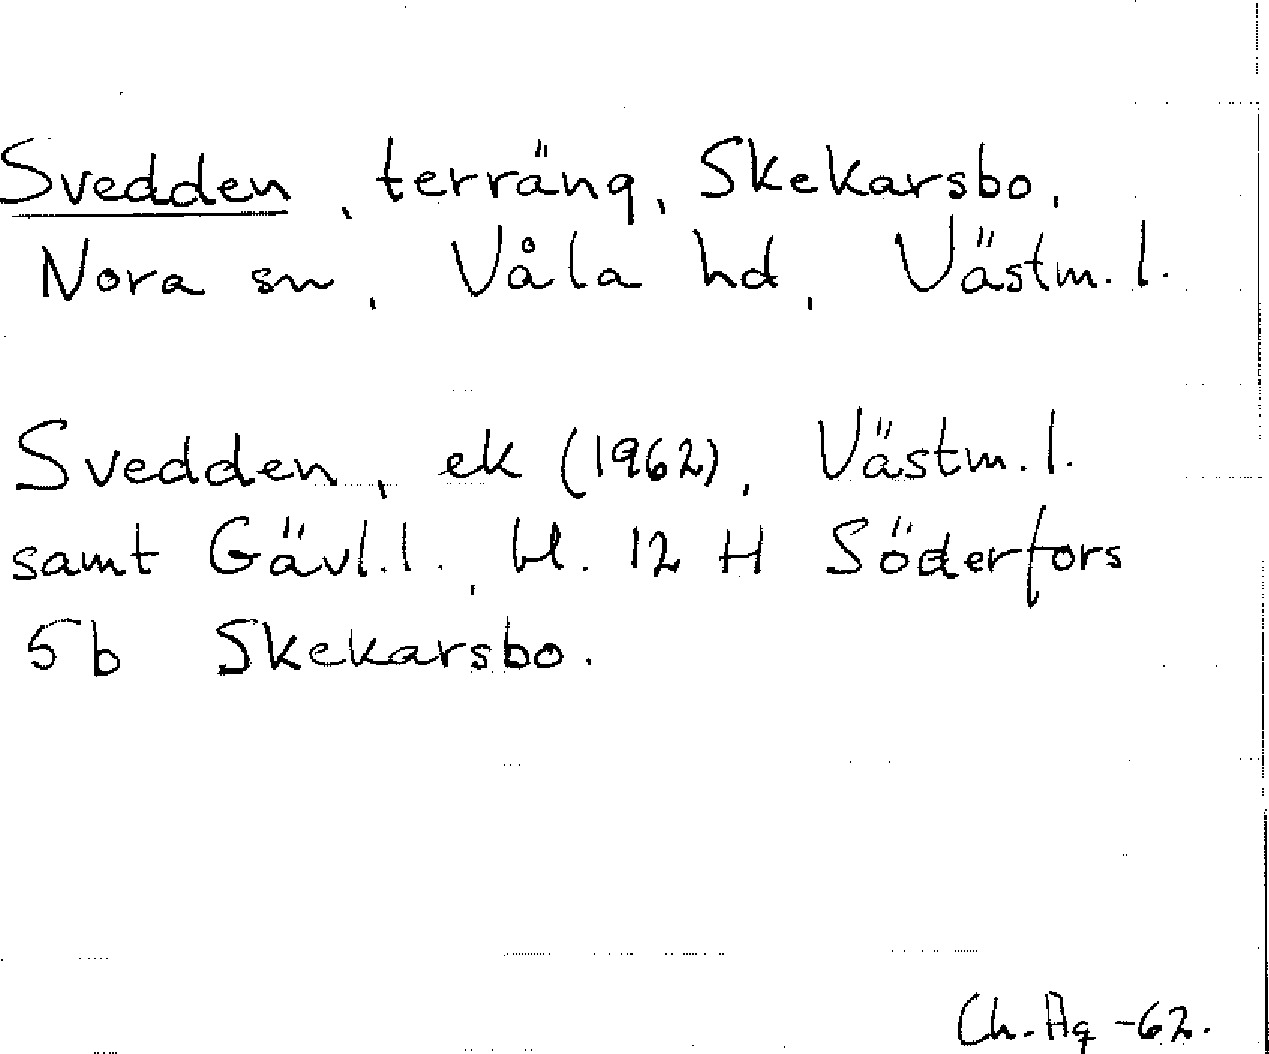 Svedden, terräng, Skekarsbo,
Nora sn, Våla hd, Västm. l.
Svedden, ek (1962), Västm. l.
samt Gävl. l., bl. 12 H Söderfors
5b Skekarsbo.
Ch. Ag -62.